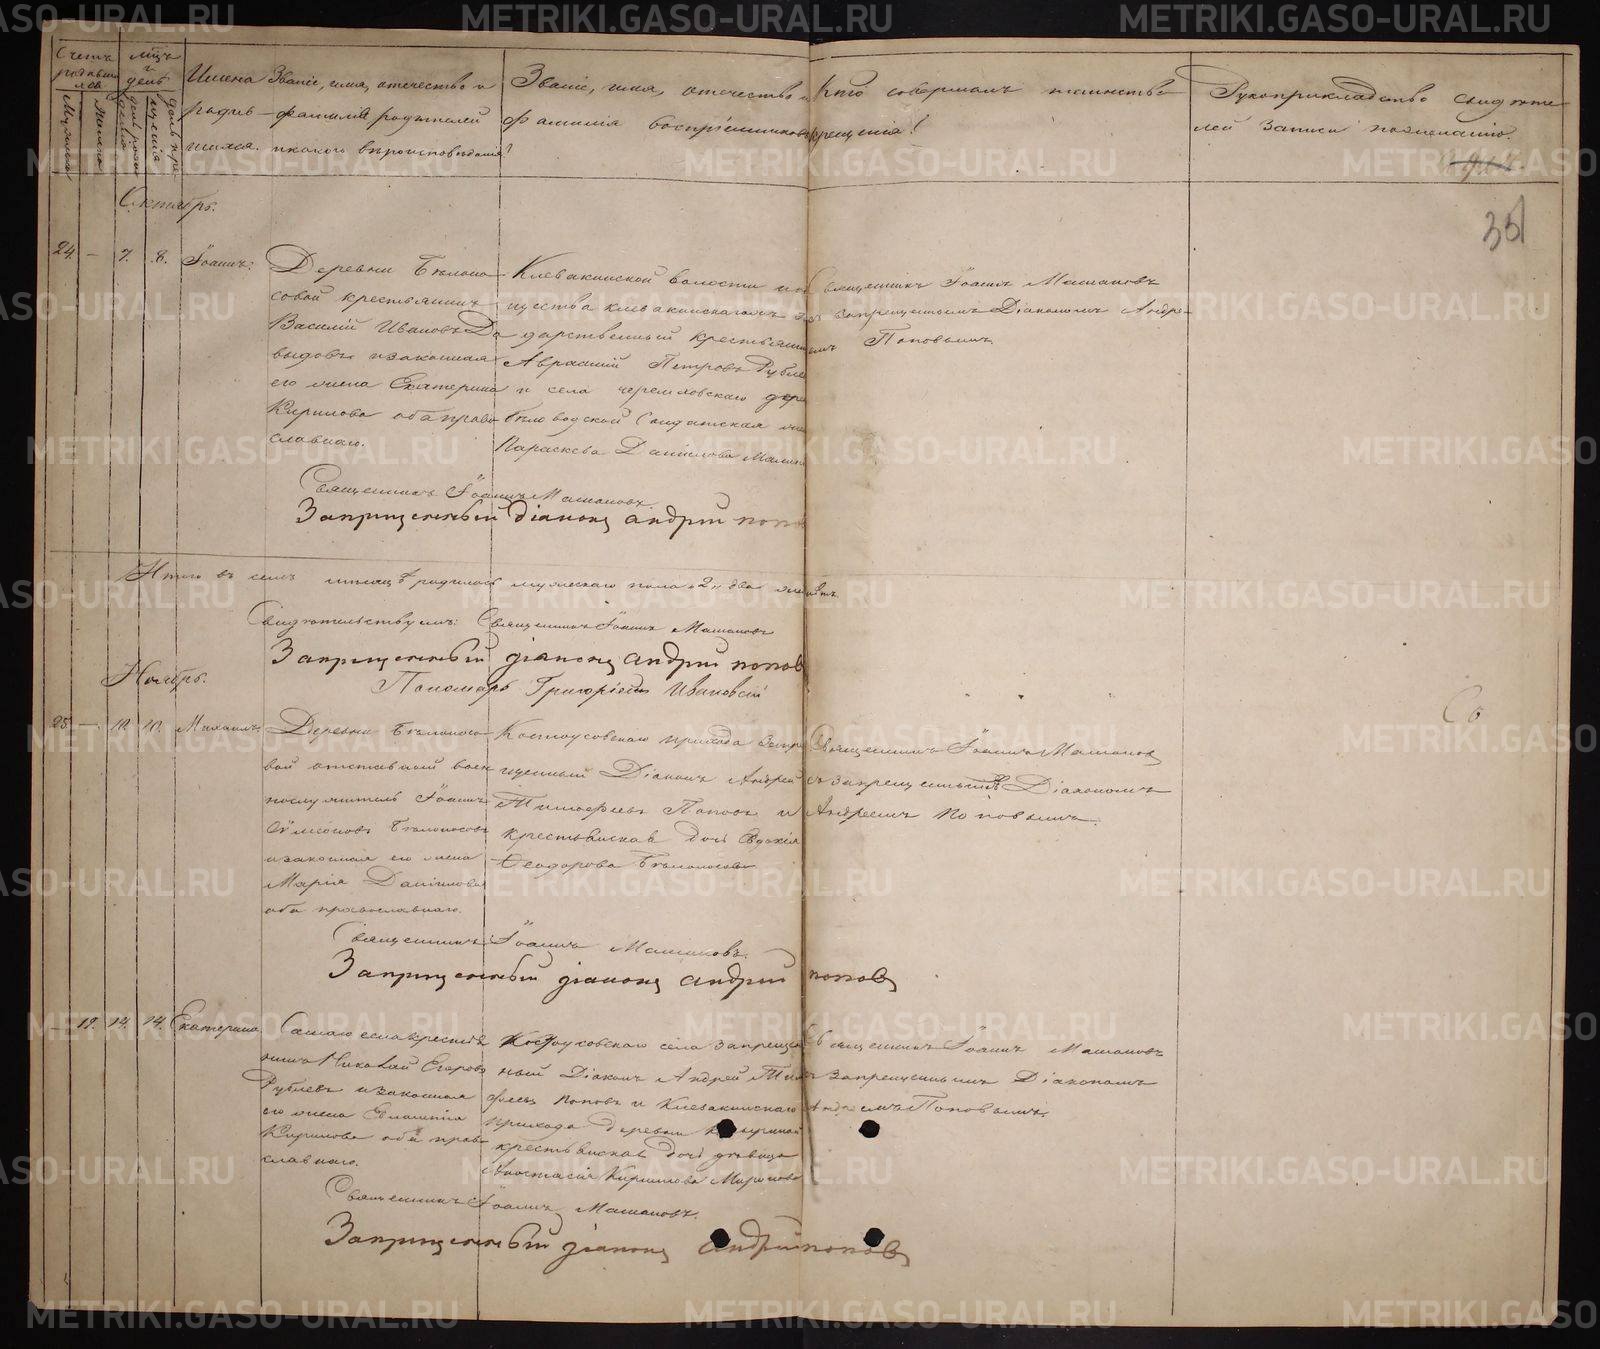 Счетъ родившихся
Мужеска
Женска
Мѣц. и день
день рожденія
крещенія
Имена родившихся.
Званіе, имя, отечество и фамилія родителей и какого вѣроисповѣданія?
Званіе, имя, отечество и фамилія воспріемниковъ
Кто совершалъ таинство крещенія?
Рукоприкладство свидѣтелей записи по желанію.
35
Октябрь.
24. — 7. 8. Іоаннъ.
Деревни Бѣлоно
совой крестьянинъ
Василій Ивановъ Да
выдовъ и законная
его жена Екатерина
Кирилова оба право
славнаго.
Клевакинской волости
щества клевакинскаго
дарственный крестьянинъ
Авраамій Петровъ Рубле
и села черемховскаго дер
Солдатская
Параскева Даніилова
Священникъ Іоаннъ Машановъ
съ запрещеннымъ Діакономъ Андре-
емъ Поповымъ
Священникъ Іоаннъ Машановъ.
Запрещенный діаконъ андрій попов
Итого въ семъ мѣсяцѣ родилось мужескаго пола „2„ два
Свидѣтельствуемъ: Священникъ Іоаннъ Машановъ
Запрещенный діаконъ андрій попов
Пономарь Григорій Ивановскій
Ноябрь.
25. — 10. 10. Михаилъ.
Деревни Бѣлоносо
вой отставной воен
нослужитель Іоаннъ
Симеоновъ Бѣлоносовъ
и законная его жена
Марія Даніилова
оба православнаго.
Костоусовскаго прихода запре
щенный Діаконъ Андрей
Тимофеевъ Поповъ и
крестьянская дочь Евдокія
Ѳеодорова Бѣлоносова
Священникъ Іоаннъ Машановъ
съ запрещеннымъ Діакономъ
Андреемъ Поповымъ.
Священникъ Іоаннъ Машановъ.
Запрещенный діаконъ андрій попов
— 19. 14. 14. Екатерина
Самаго села крестья
нинъ Николай Егоровъ
Рублевъ и законная
его жена Евлампія
Кирилова оба право
славнаго.
Костоусовскаго села запрещен
ный Діаконъ Андрей Тимо
феевъ Поповъ и Клевакинскаго
прихода деревни
крестьянская дочь дѣвица
Анастасія Кирилова Миронова
Священникъ Іоаннъ Машановъ
съ запрещеннымъ Діакономъ
Андреемъ Поповымъ.
Священникъ Іоаннъ Машановъ.
Запрещенный діаконъ андрій попов
METRIKI.GASO-URAL.RU